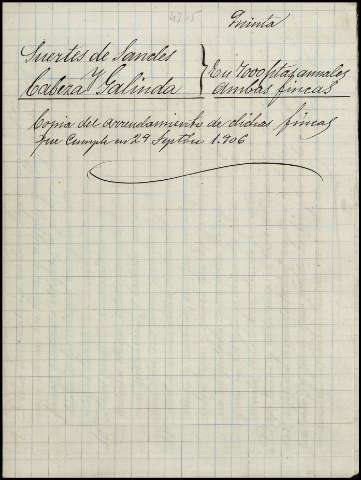 Quinta
Suertes de Sancles
y
Cabeza Galinda
} En 7000 ptas anuales
ambas fincas
Copia del arrendamiento de dichas fincas
que cumple en 29 Septbre 1.906